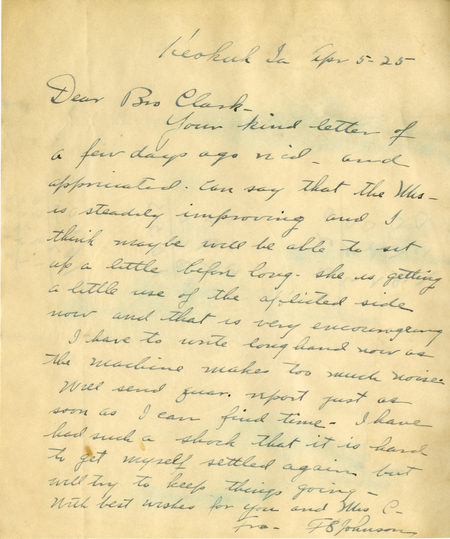 Keokuk Ia Apr 5-25
Dear Bro Clark-
Your kind letter of
a few days ago rec'd - and
appriciated. Can say that the Mrs-
is steadily improving and I
think maybe will be able to sit
up a little before long. she is getting
a little use of the aflicted side
now and that is very encourageing
I have to write longhand now as
the machine makes too much noise.
Will send quar. report just as
soon as I can find time - I have
had such a shock that it is hard
to get myself settled again but
will try to keep things going -
With best wishes for you and Mrs C-
Fra- FS Johnson